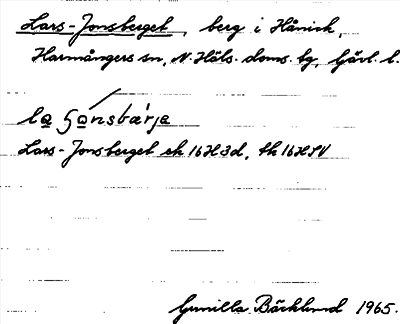 Lars-Jonsberget, berg i Hånick,
Harmångers sn, N. Häls. doms. tg, Gävl. l.
la jo̱nsbäŕja
Lars-Jonsberget ek 16H3d, tk 16H SV
Gunilla Bäcklund 1965.